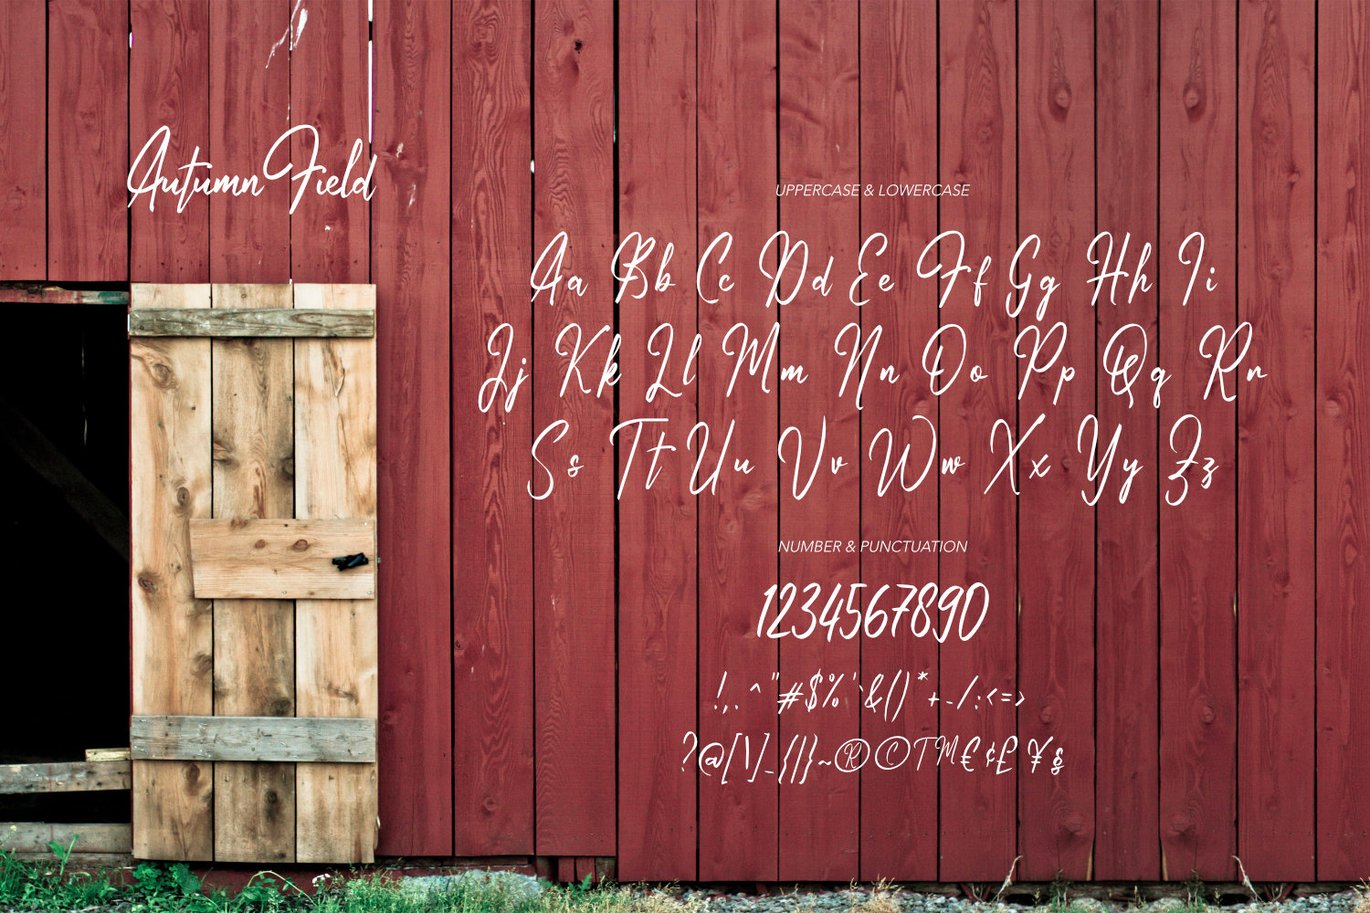 Autumn Field
UPPERCASE & LOWERCASE
Aa Bb Cc Dd Ee Ff Gg Hh Ii
Jj Kk Ll Mm Nn Oo Pp Qq Rr
Ss Tt Uu Vv Ww Xx Yy Zz
NUMBER & PUNCTUATION
1234567890
!,.^"#$%'`&()*+-/:<=>
?@[\]_{|}~®©™€¢£¥§